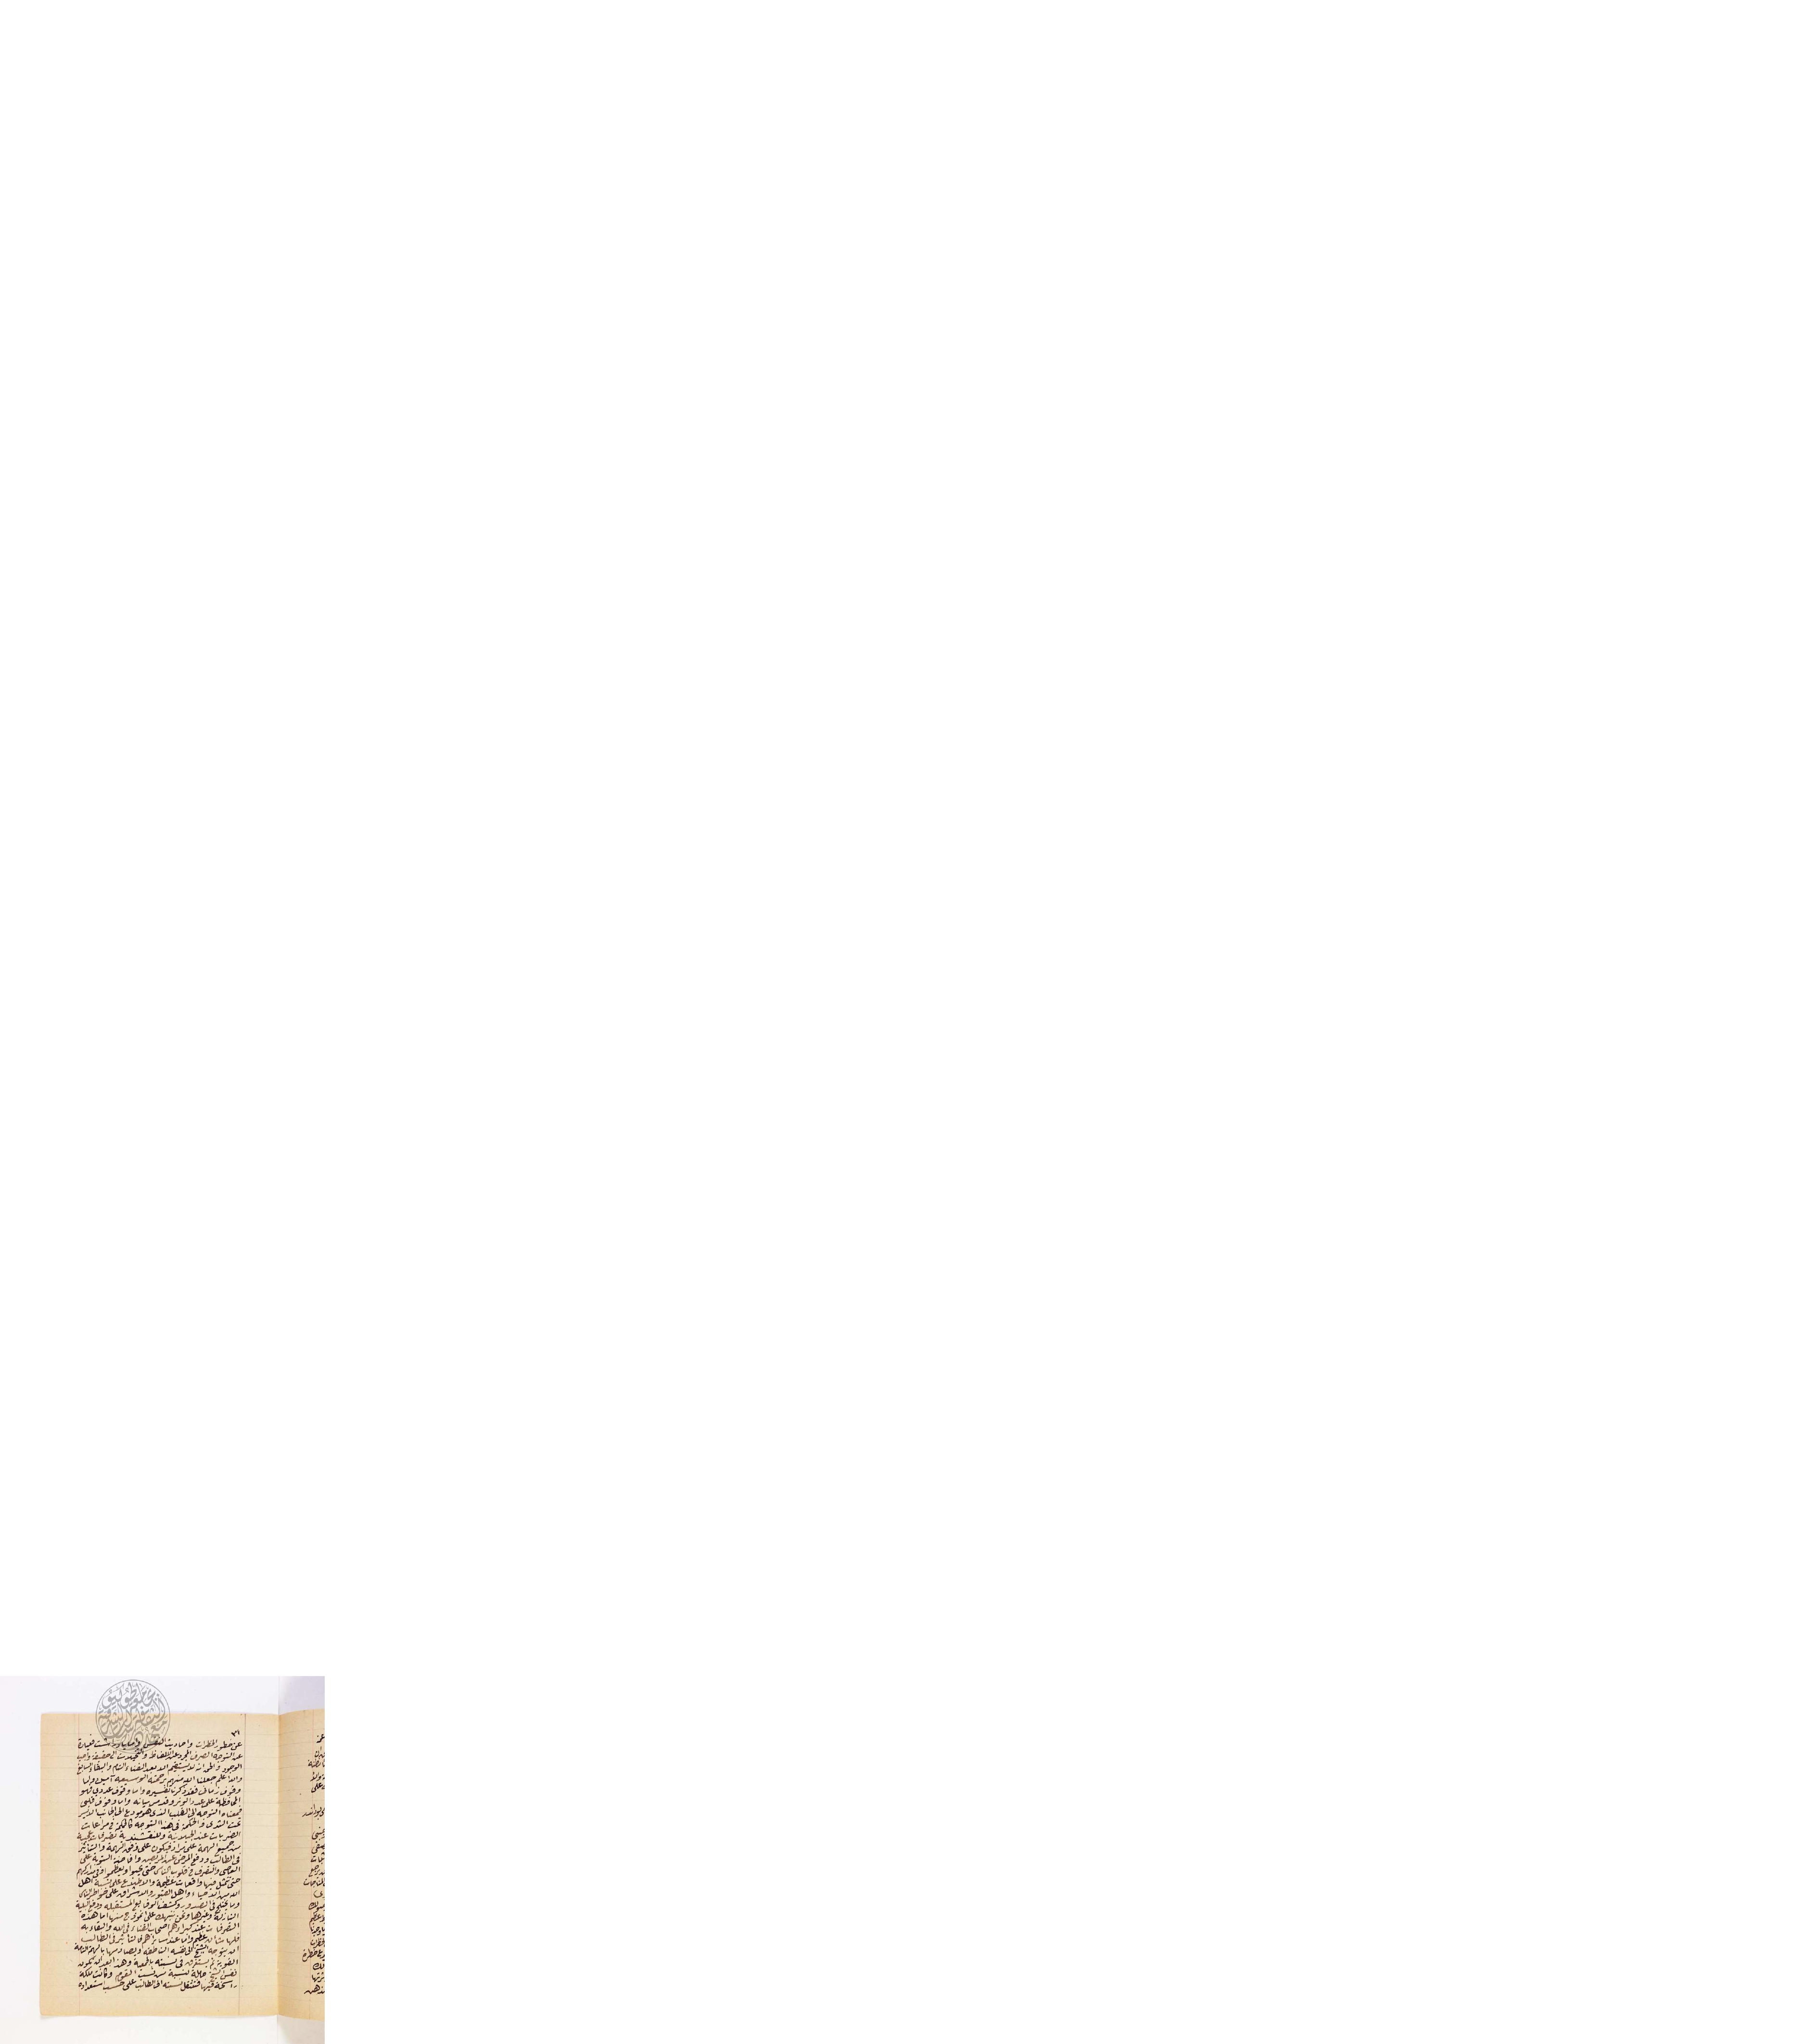 ٣١
عن خطور الخطرات واحاديث النفس واما ياد داشت فعبارة
عن التوجه الصرف المجرد عن الالفاظ والتخيلات الى حقيقة واجب
الوجود والحق انه لا يستقيم الا بعد الفناء التام والبقاء السابغ
والله اعلم جعلنا الله منهم برحمته الوسيعة آمين واما
وقوف زماني فقد ذكرنا تفسيره واما وقوف عددي فهو
المحافظة على عدد الوتر وقد مر بيانه واما وقوف قلبي
فمعناه التوجه الى القلب الذي هو مودع الى الجانب الايسر
تحت الثدى والحكمة في هذا التوجه كالحكمة في مراعات
الضربات عند الجيلانية وللنقشبندية تصرفات عجيبة
من جمع الهمة على مراد فيكون على وفق الهمة والتأثير
في الطالب ودفع المرض عن المريض وافاضة التوبة على
العاصي والتصرف في قلوب الناس حتى يحبوا ويعظموا او في مداركهم
حتى تتمثل فيها واقعات عظيمة والاطلاع على نسبة اهل
الله من الاحياء واهل القبور والاشراف على خواطر الناس
وما يختلج في الصدور وكشف الوقايع المستقبلة ودفع البلية
النازلة وغيرها ونحن ننبهك على نموذج منها اما هذه
التصرفات عند كبراءهم اصحاب الفناء في الله والبقاء به
فلها شان عظيم واما عند سائرهم فالتأثير في الطالب
ان يتوجه الشيخ الى نفسه الناطقة ويصادمها بالهمة التامة
القوية ثم يستغرق في نسبته بالجمعية وهذا بعد ان تكون
نفس الشيخ حاملة لنسبة من نسب القوم وكانت ملكة
راسخة فيها فتنتقل نسبته الى الطالب على حسب استعداده